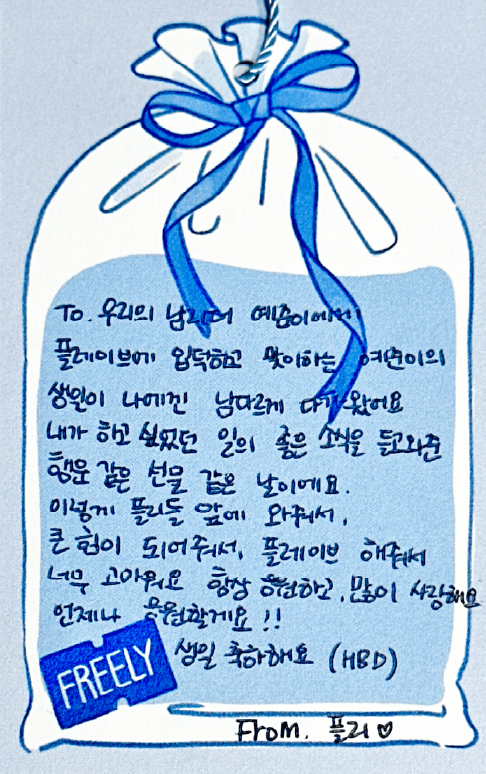 To. 우리의 남리더 예준이에게
플레이브에 입덕하고 맞이하는 예준이의
생일이 나에겐 남다르게 다가왔어요
내가 하고 싶었던 일의 좋은 소식을 들고와준
행운 같은 선물 같은 날이에요.
이렇게 플리들 앞에 와줘서,
큰 힘이 되어줘서, 플레이브 해줘서
너무 고마워요 항상 응원하고, 많이 사랑해요
언제나 응원할게요!!
생일 축하해요 (HBD)
FREELY
From. 플리♡